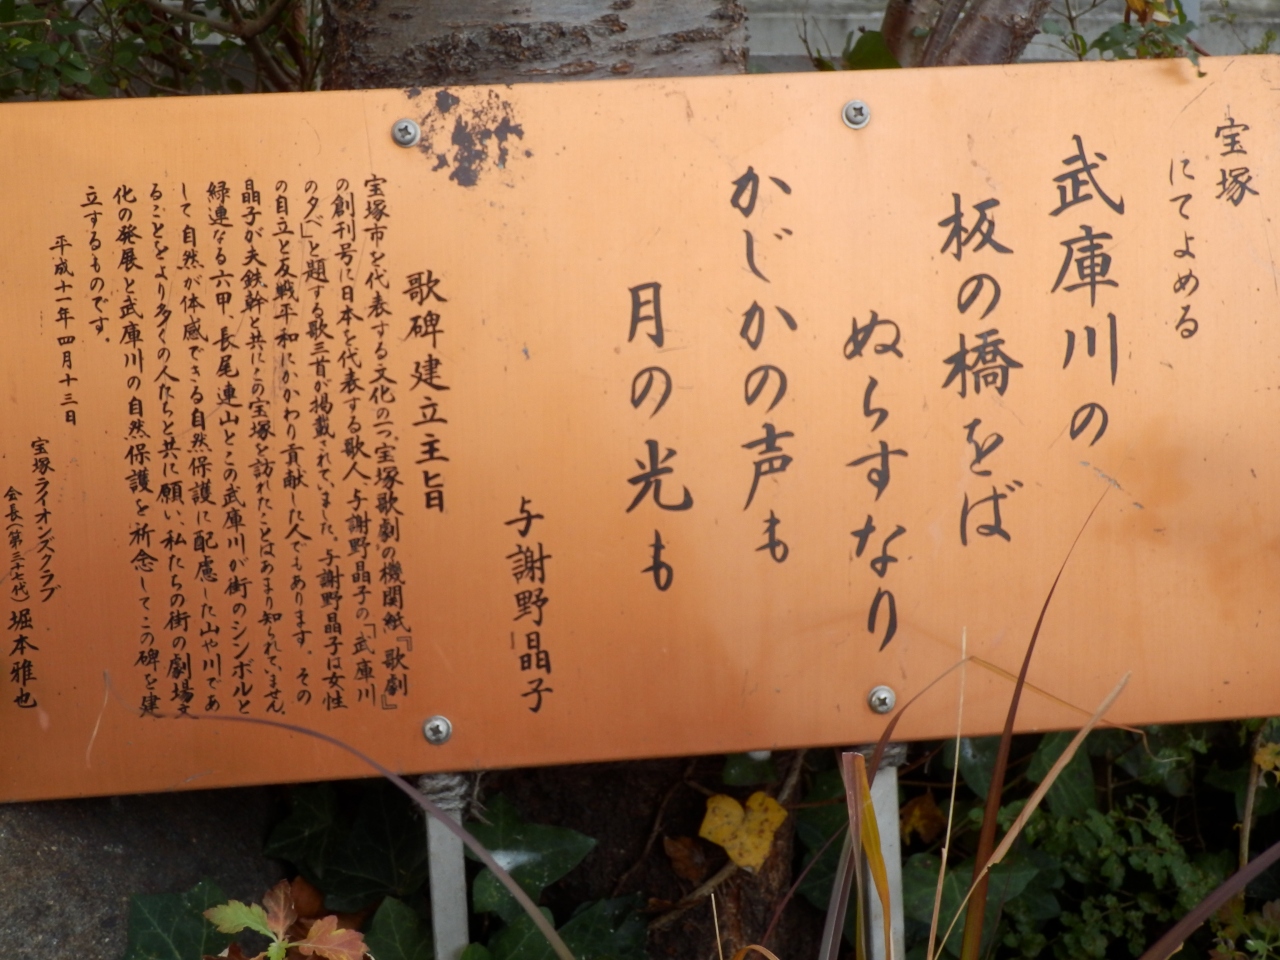 宝塚
にてよめる
武庫川の
板の橋をば
ぬらすなり
かじかの声も
月の光も
与謝野晶子
歌碑建立主旨
宝塚市を代表する文化の一つ、宝塚歌劇の機関紙『歌劇』
の創刊号に日本を代表する歌人、与謝野晶子の「武庫川
の夕べ」と題する歌三首が掲載されていました。与謝野晶子は女性
の自立と反戦平和にかかわり貢献した人でもあります。その
晶子が夫鉄幹と共にこの宝塚を訪れたことはあまり知られていません。
緑連なる六甲、長尾連山とこの武庫川が街のシンボルと
して自然が体感できる自然保護に配慮した山や川であ
ることをより多くの人たちと共に願い、私たちの街の劇場文
化の発展と武庫川の自然保護を祈念してこの碑を建
立するものです。
平成十一年四月十三日
宝塚ライオンズクラブ
会長(第三十七代) 堀本雅也